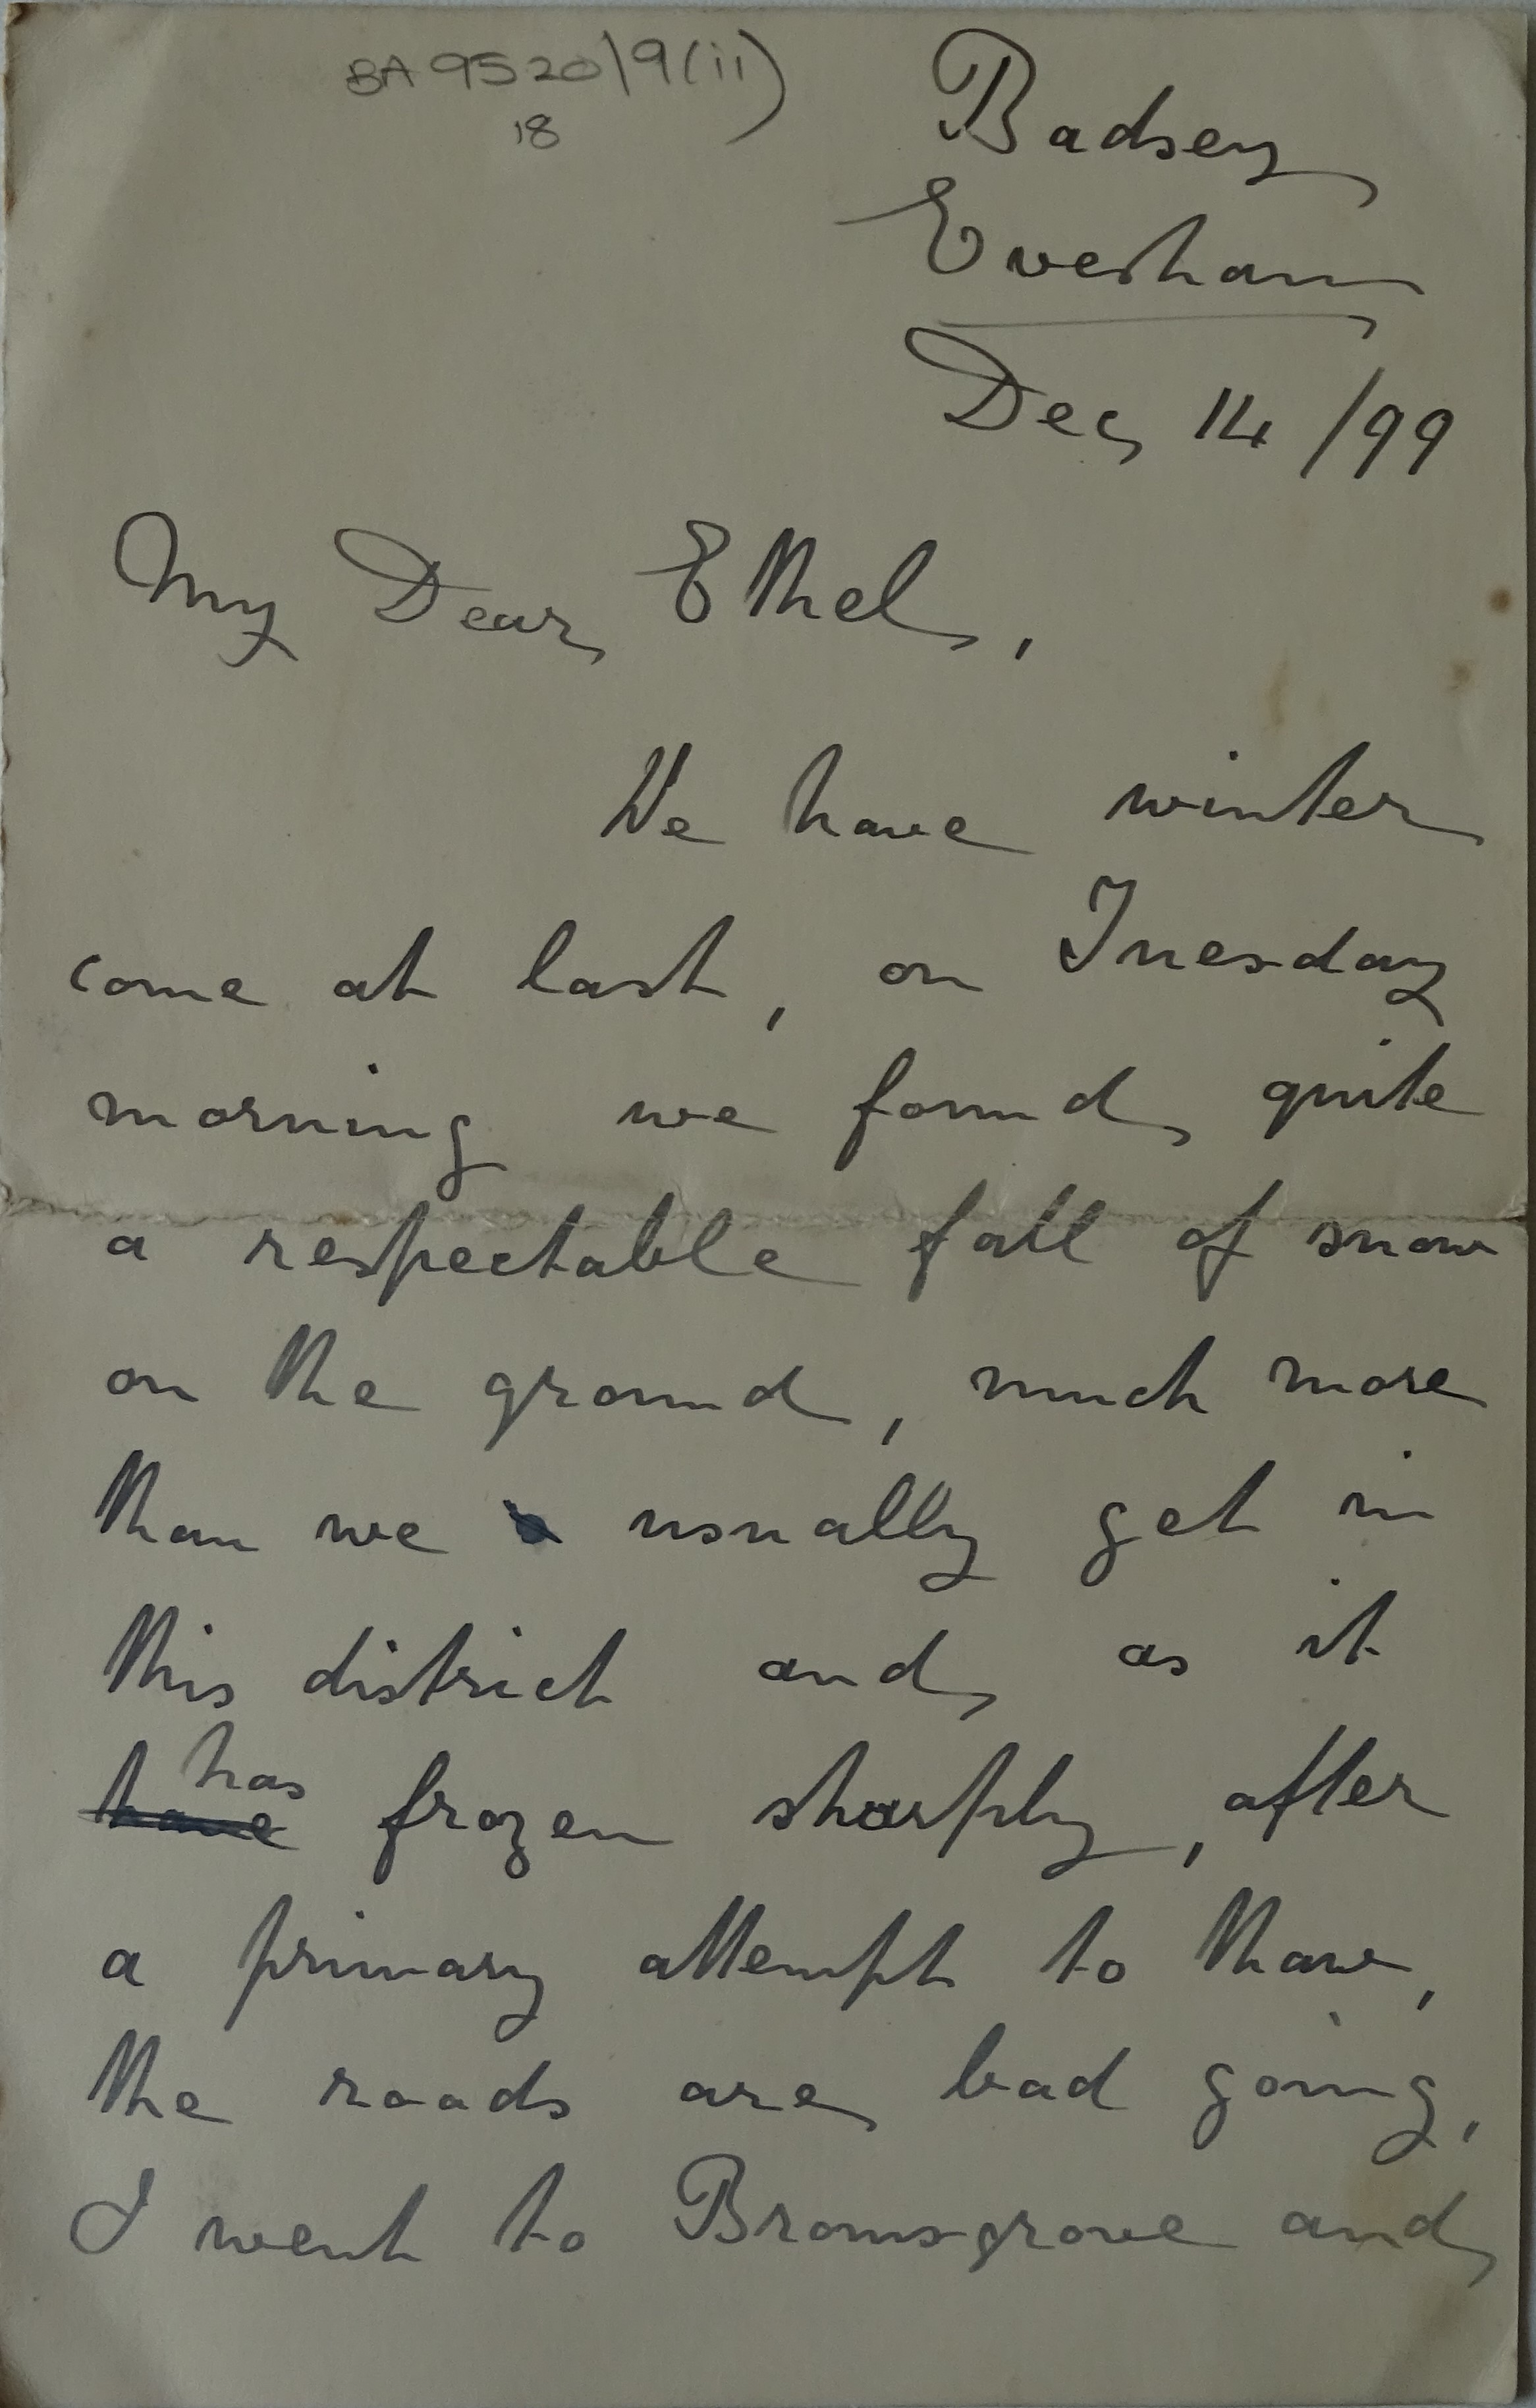 BA 9520/9(ii)
18
Badsey
Evesham
Dec 14/99
My Dear Ethel,
We have winter
come at last, on Tuesday
morning we found quite
a respectable fall of snow
on the ground, much more
than we usually get in
this district and as it
has
have frozen sharply, after
a primary attempt to thaw,
the roads are bad going,
I went to Bromsgrove and